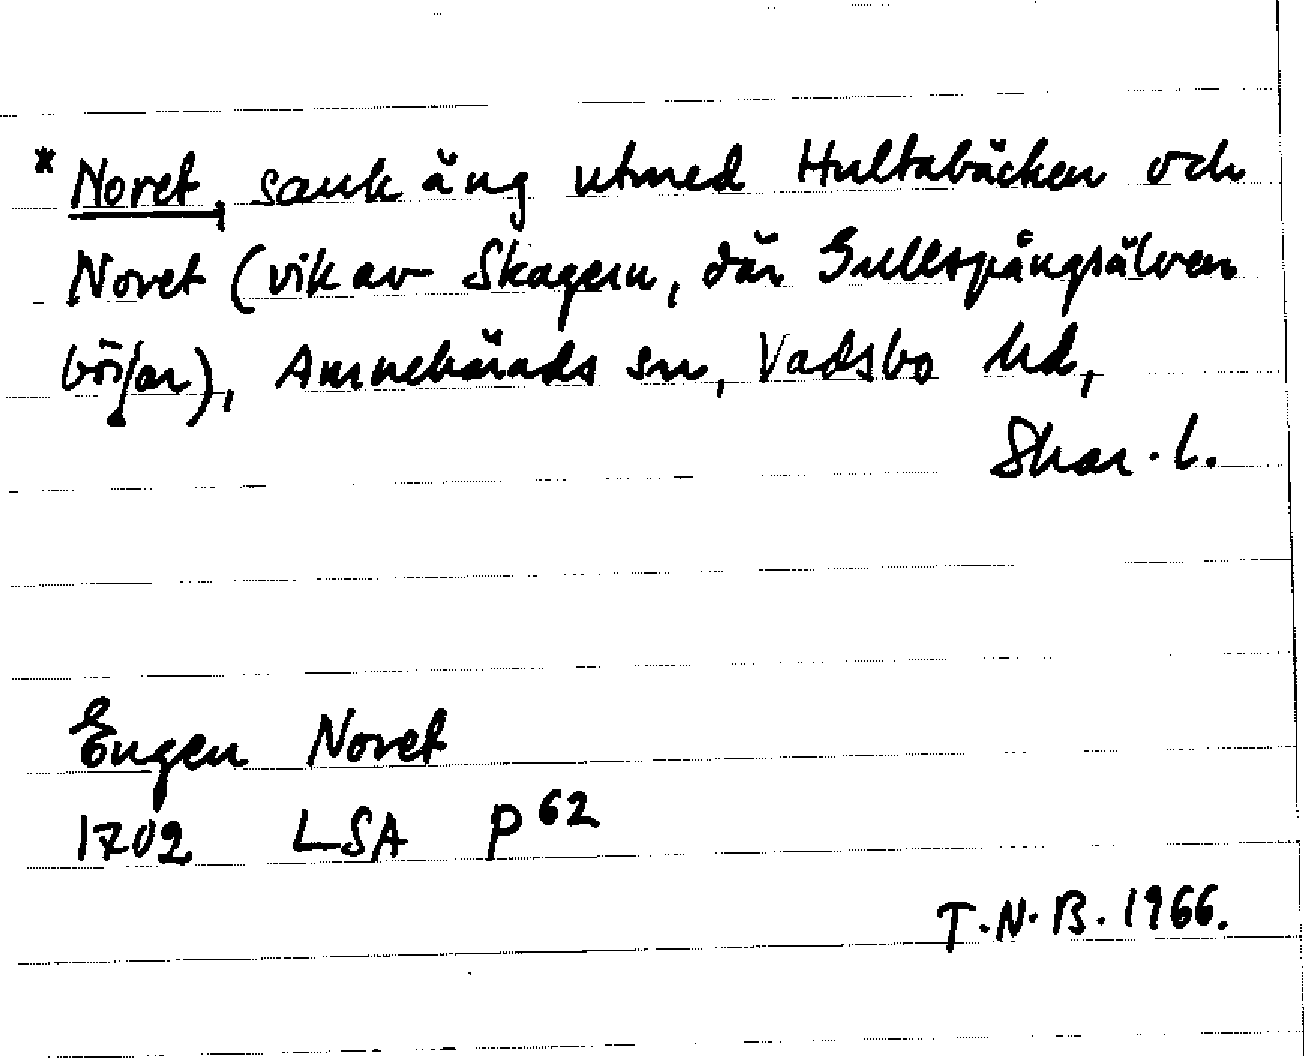 * Noret, sank äng utmed Hultabäcken och
Noret (vik av Skagern, där Gullspångsälven
börjar), Amnehärads sn, Vadsbo hd,
Skar. l.
Engen Noret
1702 LSA P 62
T.N.B. 1966.